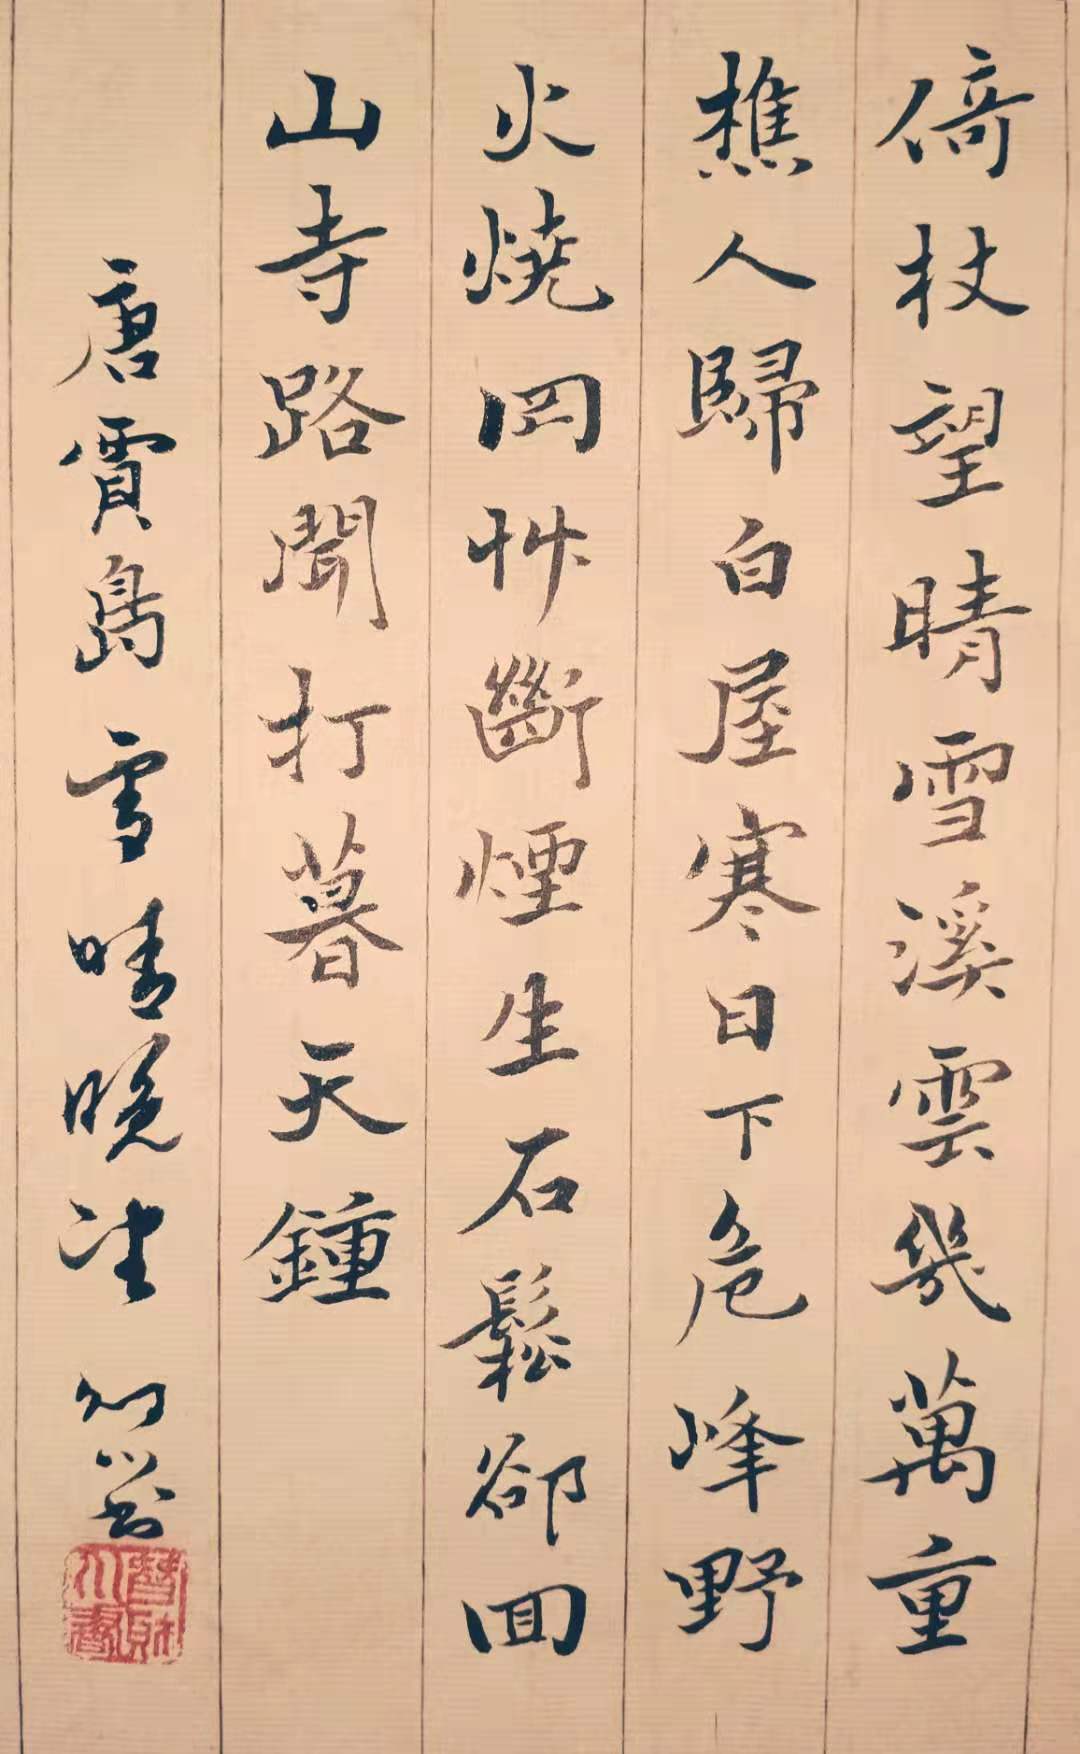 倚杖望晴雪溪雲幾萬重
樵人歸白屋寒日下危峰野
火燒罔艸斷煙生石鬆郤回
山寺路聞打暮天鐘
唐賈島 雪晴晚望